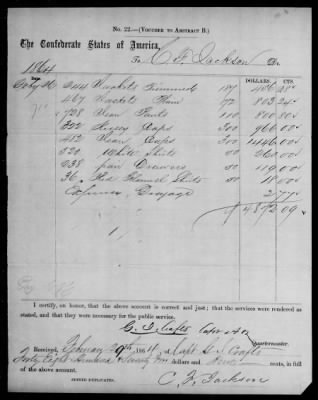 No. 22.—(Voucher to Abstract B.)
The Confederate States of America,
To C. F. Jackson Dr.
1864 DOLLARS. CTS.
244 Jackets Trimmed
467 Jackets Plain 172 803 24
728 Jean Pants 110 800 80
322 Caps 300 966 00
Jean Caps 300 1446 00
520 White Shirts 50 260 00
238 pair Drawers 50 119 00
36 Red Flannel Shirts 50 18 00
Expenses Drayage
$ 4872 09
I certify, on honor, that the above account is correct and just; that the services were rendered as
stated, and that they were necessary for the public service.
G. S. Crafts Capt & AQ
Quartermaster.
Received, February 29th 1864, of Capt G. S. Crafts
Forty Eight Hundred & Seventy Two dollars and Nine cents, in full
of the above account.
C. F. Jackson
SIGNED DUPLICATES.